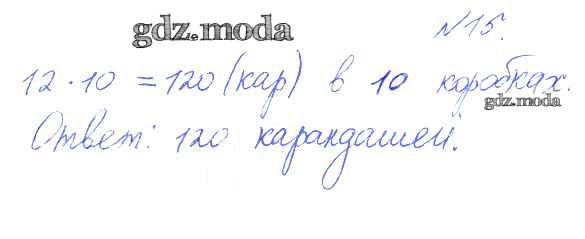 gdz.moda
№15.
12 · 10 = 120 (кар) в 10 коробках.
gdz.moda
Ответ: 120 карандашей.